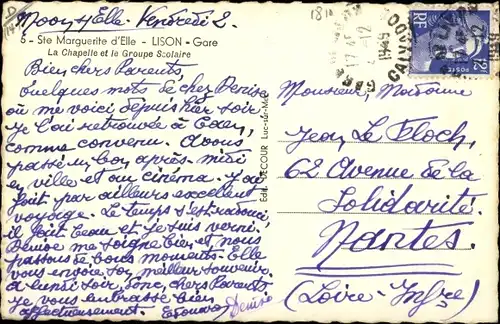 Moon s/Elle. Vendredi 2.
6 - Ste Marguerite d'Elle - LISON - Gare
La Chapelle et le Groupe Scolaire
Bien chers Parents
Quelques mots de chez Denise
où me voici depuis hier soir
Je l'ai retrouvée à Caen,
comme convenu. Avons
passé un bon après-midi
en ville et au cinéma. J'ai
fait par ailleurs excellent
voyage. Le temps s'est radouci
il fait beau et je suis verni.
Denise me soigne bien et nous
passons de bons moments. Elle
vous envoie son meilleur souvenir.
à lundi soir, donc, chers Parents
je vous embrasse bien
affectueusement.
Denise
Edit. DECOUR Luc-s-Mer
17-45
-12
1949
CALVADOS
RF
POSTES
12
Monsieur, Madame
Jean Le Floch,
62 Avenue de la
Solidarité.
Nantes.
(Loire-Infre)